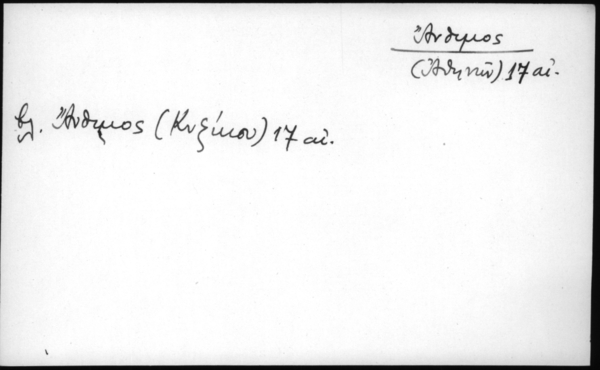 Ἄνθιμος
(Ἀθηνῶν) 17 αἰ.
βλ. Ἄνθιμος (Κυζίκου) 17 αἰ.